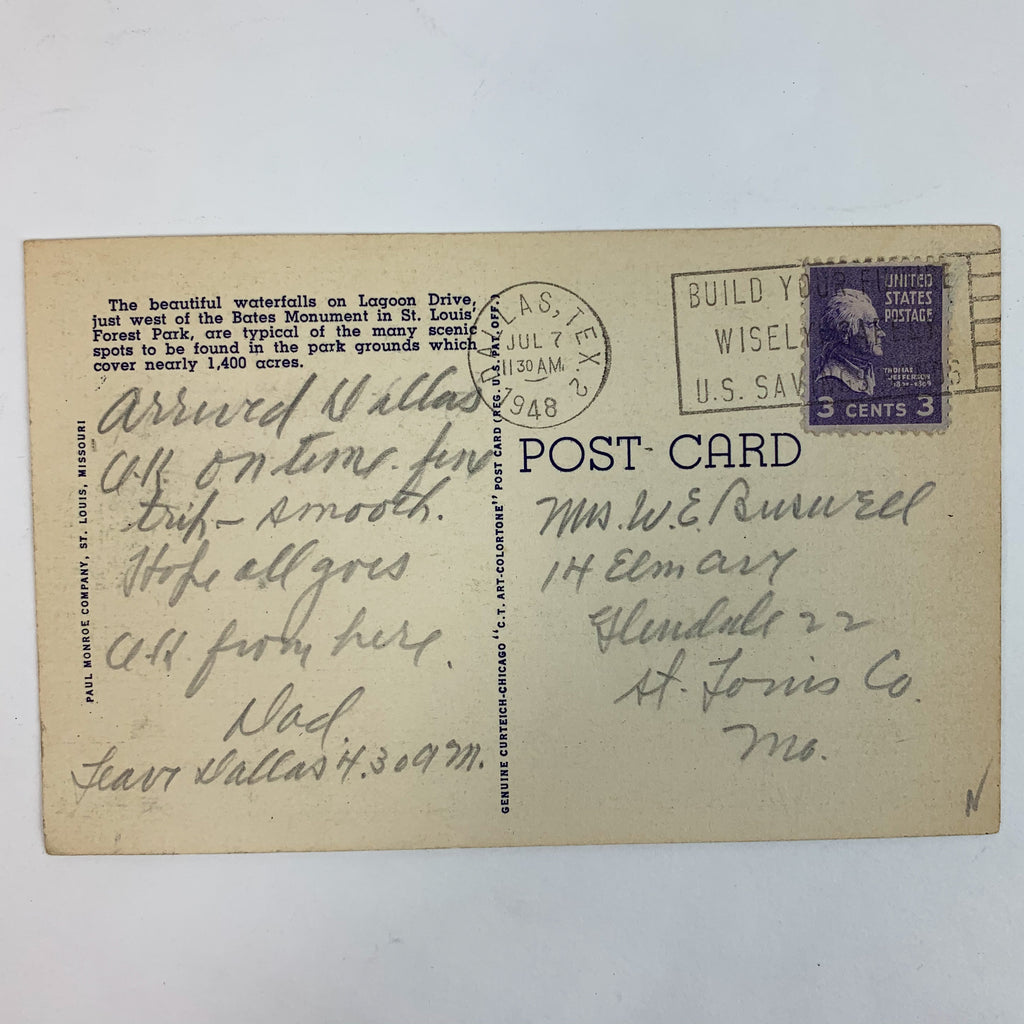 The beautiful waterfalls on Lagoon Drive,
just west of the Bates Monument in St. Louis'
Forest Park, are typical of the many scenic
spots to be found in the park grounds which
cover nearly 1,400 acres.
Arrived Dallas
O.K. on time. fine
trip - smooth.
Hope all goes
O.K. from here.
Dad.
Leave Dallas 4.30 A M.
PAUL MONROE COMPANY, ST. LOUIS, MISSOURI
GENUINE CURTEICH-CHICAGO "C.T. ART-COLORTONE" POST CARD (REG. U.S. PAT. OFF.)
DALLAS, TEX. 2
JUL 7
11 30 AM
1948
BUILD YOUR FUTURE
WISELY
U.S. SAV
UNITED
STATES
POSTAGE
THOMAS
JEFFERSON
1801-1809
3 CENTS 3
POST CARD
Mrs. W. E. Buswell
14 Elm Av
Glendale 22
St. Louis Co.
Mo.
N